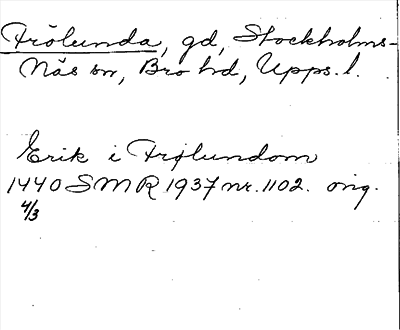 Frölunda, gd, Stockholms-
Näs sn, Bro hd, Upps. l.
Erik i Frølundom
1440 SMR 1937 nr. 1102. orig.
4/3